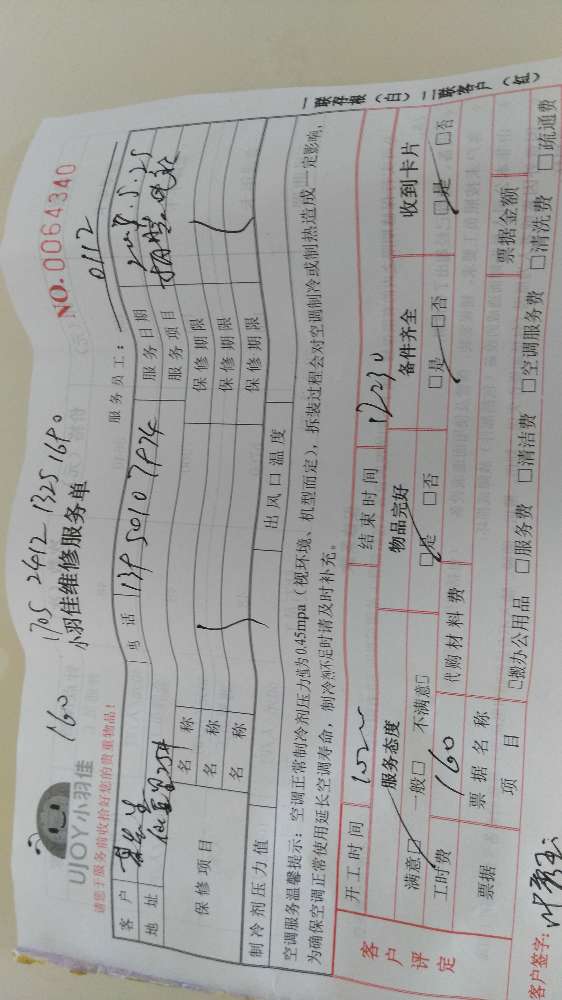 160 1705 2412 1325 1690
UIOY小羽佳
小羽佳维修服务单
NO. 0064340
请您于服务前收拾好您的贵重物品!
服务员工: 0112
客户 电话 139 5010 7974 服务日期 5.25
地址 服务项目
保修项目
名称 保修期限
名称 保修期限
名称 保修期限
制冷剂压力值 出风口温度
空调服务温馨提示:空调正常制冷剂压力值为0.45mpa(视环境、机型而定),拆装过程会对空调制冷或制热造成一定影响,
为确保空调正常使用延长空调寿命,制冷剂不足时请及时补充。
一联存根(白) 二联客户(红)
客户评定
开工时间 结束时间 12230
服务态度 物品完好 备件齐全 收到卡片
满意□ 一般□ 不满意□ □是 □否 □是 □否 □是 □否
工时费 160 代购材料费
票据 票据名称 票据金额
项目 □搬办公用品 □服务费 □清洁费 □空调服务费 □清洗费 □疏通费
客户签字: